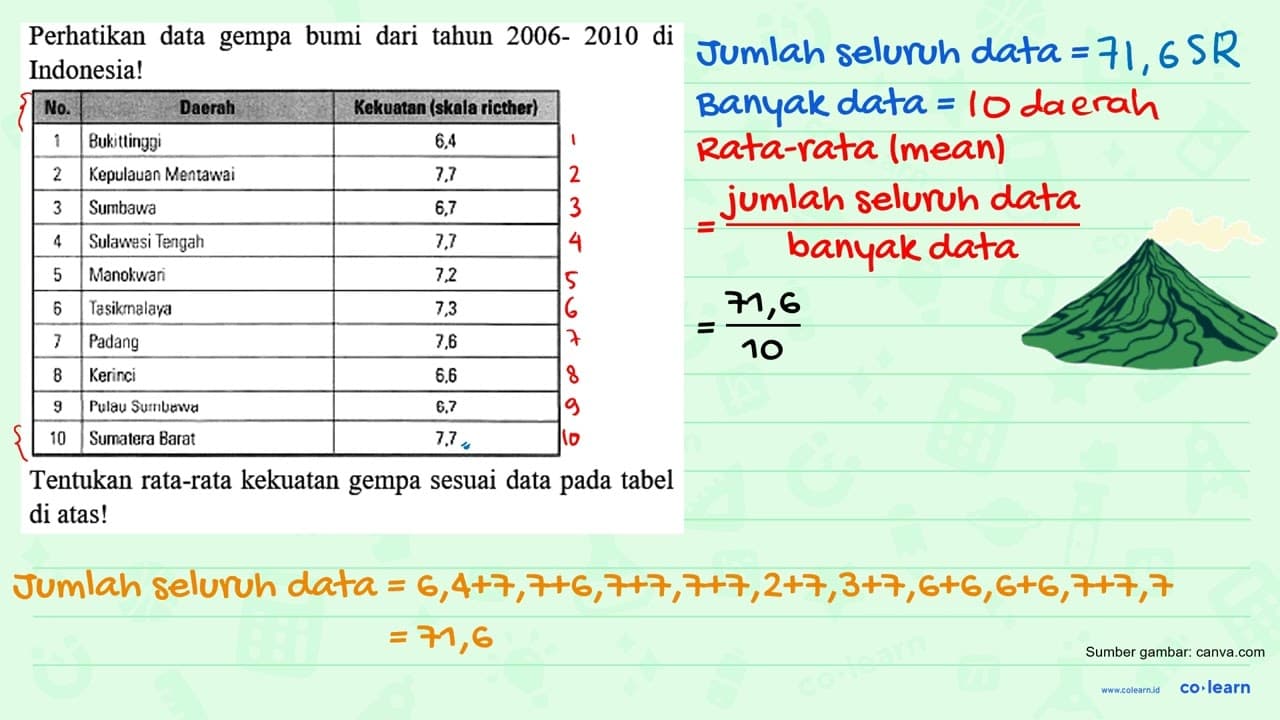 Perhatikan data gempa bumi dari tahun 2006- 2010 di
Indonesia!
No. Daerah Kekuatan (skala ricther)
1 Bukittinggi 6,4 1
2 Kepulauan Mentawai 7,7 2
3 Sumbawa 6,7 3
4 Sulawesi Tengah 7,7 4
5 Manokwari 7,2 5
6 Tasikmalaya 7,3 6
7 Padang 7,6 7
8 Kerinci 6,6 8
9 Pulau Sumbawa 6,7 9
10 Sumatera Barat 7,7 10
Tentukan rata-rata kekuatan gempa sesuai data pada tabel
di atas!
Jumlah seluruh data = 71,6 SR
Banyak data = 10 daerah
Rata-rata (mean)
= jumlah seluruh data
banyak data
= 71,6
10
Jumlah seluruh data = 6,4+7,7+6,7+7,7+7,2+7,3+7,6+6,6+6,7+7,7
= 71,6
Sumber gambar: canva.com
www.colearn.id co·learn